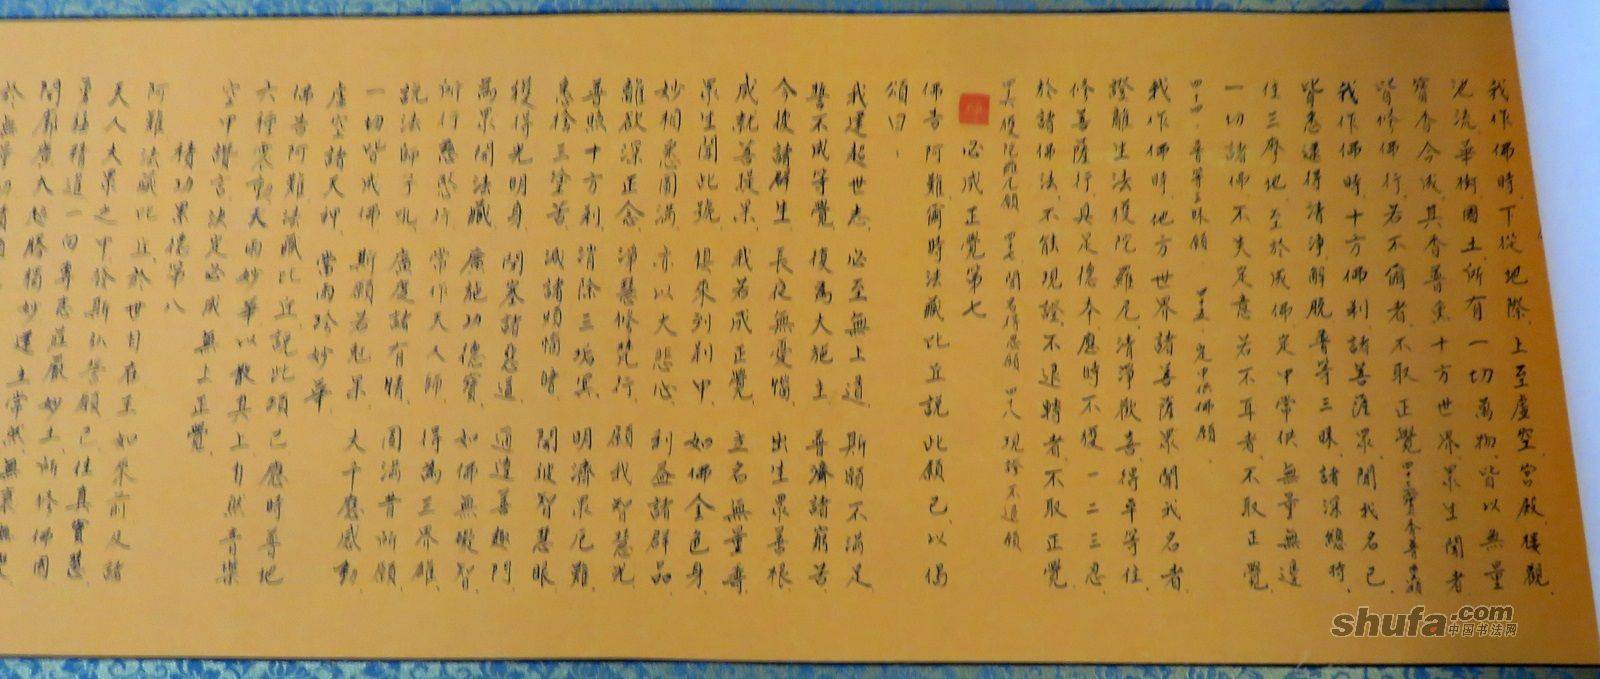 我作佛時。下從地際。上至虛空。宮殿樓觀。
池流華樹。國土所有一切萬物。皆以無量
寶香合成。其香普熏十方世界。眾生聞者。
皆修佛行。若不爾者。不取正覺。
我作佛時。十方佛剎。諸菩薩眾。聞我名已。
皆悉逮得清淨。解脫。普等三昧。諸深總持。
住三摩地。至於成佛。定中常供無量無邊
一切諸佛。不失定意。若不爾者。不取正覺。
四十四。普等三昧願 四十五。定中供佛願。
我作佛時。他方世界諸菩薩眾。聞我名者。
證離生法。獲陀羅尼。清淨歡喜。得平等住。
修菩薩行。具足德本。應時不獲一二三忍。
於諸佛法。不能現證不退轉者。不取正覺。
四六獲陀羅尼願 四七聞名得忍願 四八現證不退願
必成正覺第七
佛告阿難。爾時法藏比丘說此願已。以偈
頌曰。
我建超世志 必至無上道 斯願不滿足
誓不成等覺 復為大施主 普濟諸窮苦
令彼諸群生 長夜無憂惱 出生眾善根
成就菩提果 我若成正覺 立名無量壽
眾生聞此號 俱來到剎中 如佛金色身
妙相悉圓滿 亦以大悲心 利益諸群品
離欲深正念 淨慧修梵行 願我智慧光
普照十方剎 消除三垢冥 明濟眾厄難
悉捨三塗苦 滅諸煩惱暗 開彼智慧眼
獲得光明身 閉塞諸惡道 通達善趣門
為眾開法藏 廣施功德寶 如佛無礙智
所行慈愍行 常作天人師 得為三界雄
說法師子吼 廣度諸有情 圓滿昔所願
一切皆成佛 斯願若剋果 大千應感動
虛空諸天神 當雨珍妙華
佛告阿難。法藏比丘。說此頌已。應時普地
六種震動。天雨妙華。以散其上。自然音樂
空中讚言。決定必成無上正覺。
積功累德第八
阿難。法藏比丘於世自在王如來前。及諸
天人大眾之中。發斯弘誓願已。住真實慧。
勇猛精進。一向專志莊嚴妙土。所修佛國。
開廓廣大。超勝獨妙。建立常然。無衰無變。
shufa.com
中国书法网